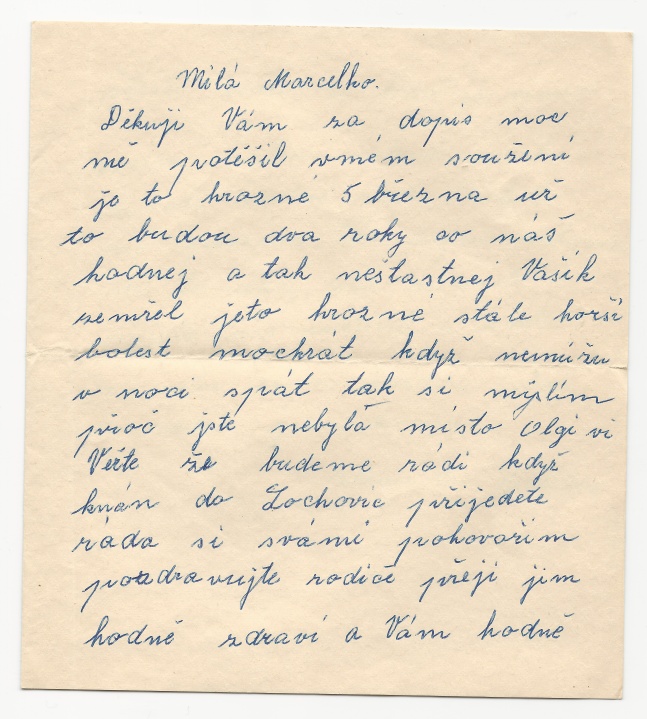 Milá Marcelko.
Děkuji Vám za dopis moc
mě potěšil vmém soužení
je to hrozné 5 března už
to budou dva roky co náš
hodnej a tak neštastnej Vašík
zemřel jeto hrozné stále horší
bolest mockrát když nemůžu
v noci spát tak si myslím
proč jste nebyla místo Olgi vi
Věřte že budeme rádi když
knán do Lochovic přijedete
ráda si svámi pohovořim
pozdravujte rodiče přeji jim
hodně zdraví a Vám hodně